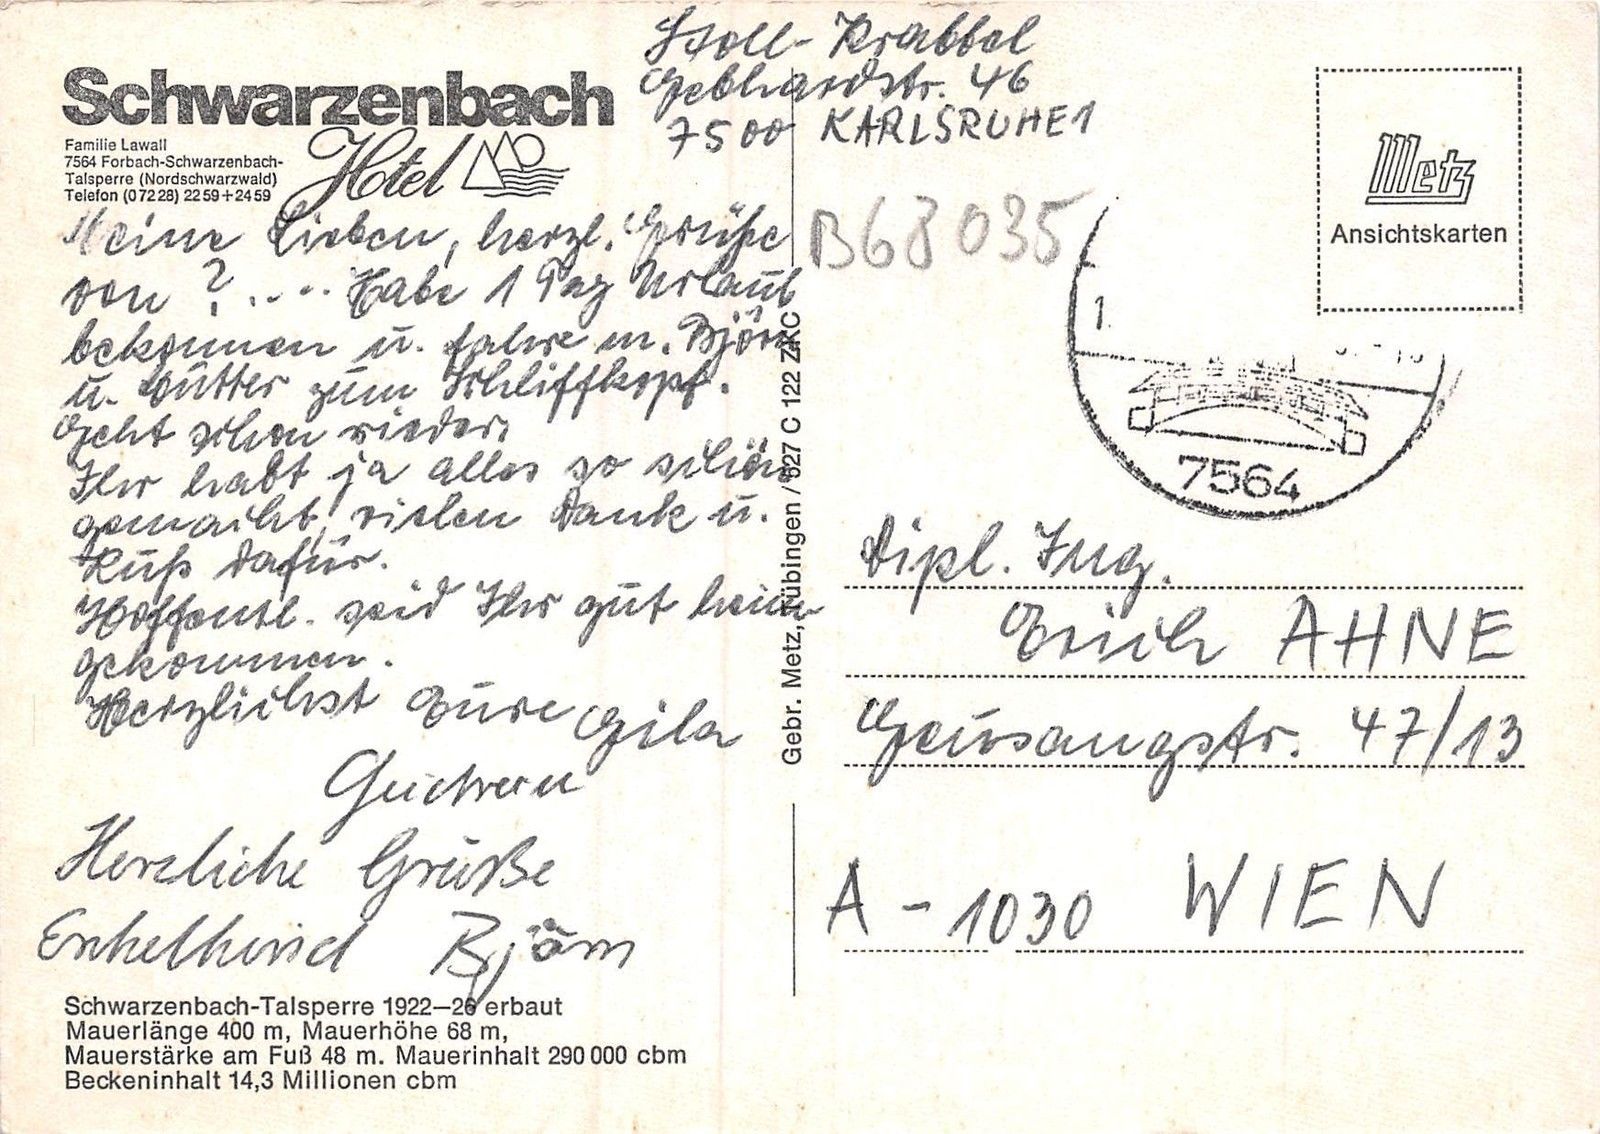 Stoll-Krabbel
Gebhardstr. 46
7500 KARLSRUHE 1
Schwarzenbach
Hotel
Familie Lawall
7564 Forbach-Schwarzenbach-
Talsperre (Nordschwarzwald)
Telefon (07228) 2259+2459
Meine Lieben, herzl. Grüße
von ? .... Habe 1 Tag Urlaub
bekommen u. fahre m. Björn
u. Mutter zum Schliffkopf.
Geht schon wieder.
Ihr habt ja alles so schön
gemacht, vielen Dank u.
Kuß dafür.
Hoffentl. seid Ihr gut heim
gekommen.
Herzlichst Eure Gila
Herzliche Grüße
Enkelkind Björn
Schwarzenbach-Talsperre 1922–26 erbaut
Mauerlänge 400 m, Mauerhöhe 68 m,
Mauerstärke am Fuß 48 m. Mauerinhalt 290 000 cbm
Beckeninhalt 14,3 Millionen cbm
Gebr. Metz, Tübingen / 627 C 122 ZKC
B68035
Metz
Ansichtskarten
1.
7564
Dipl. Ing.
Erich AHNE
Geusaugasse 47/13
A - 1030 WIEN